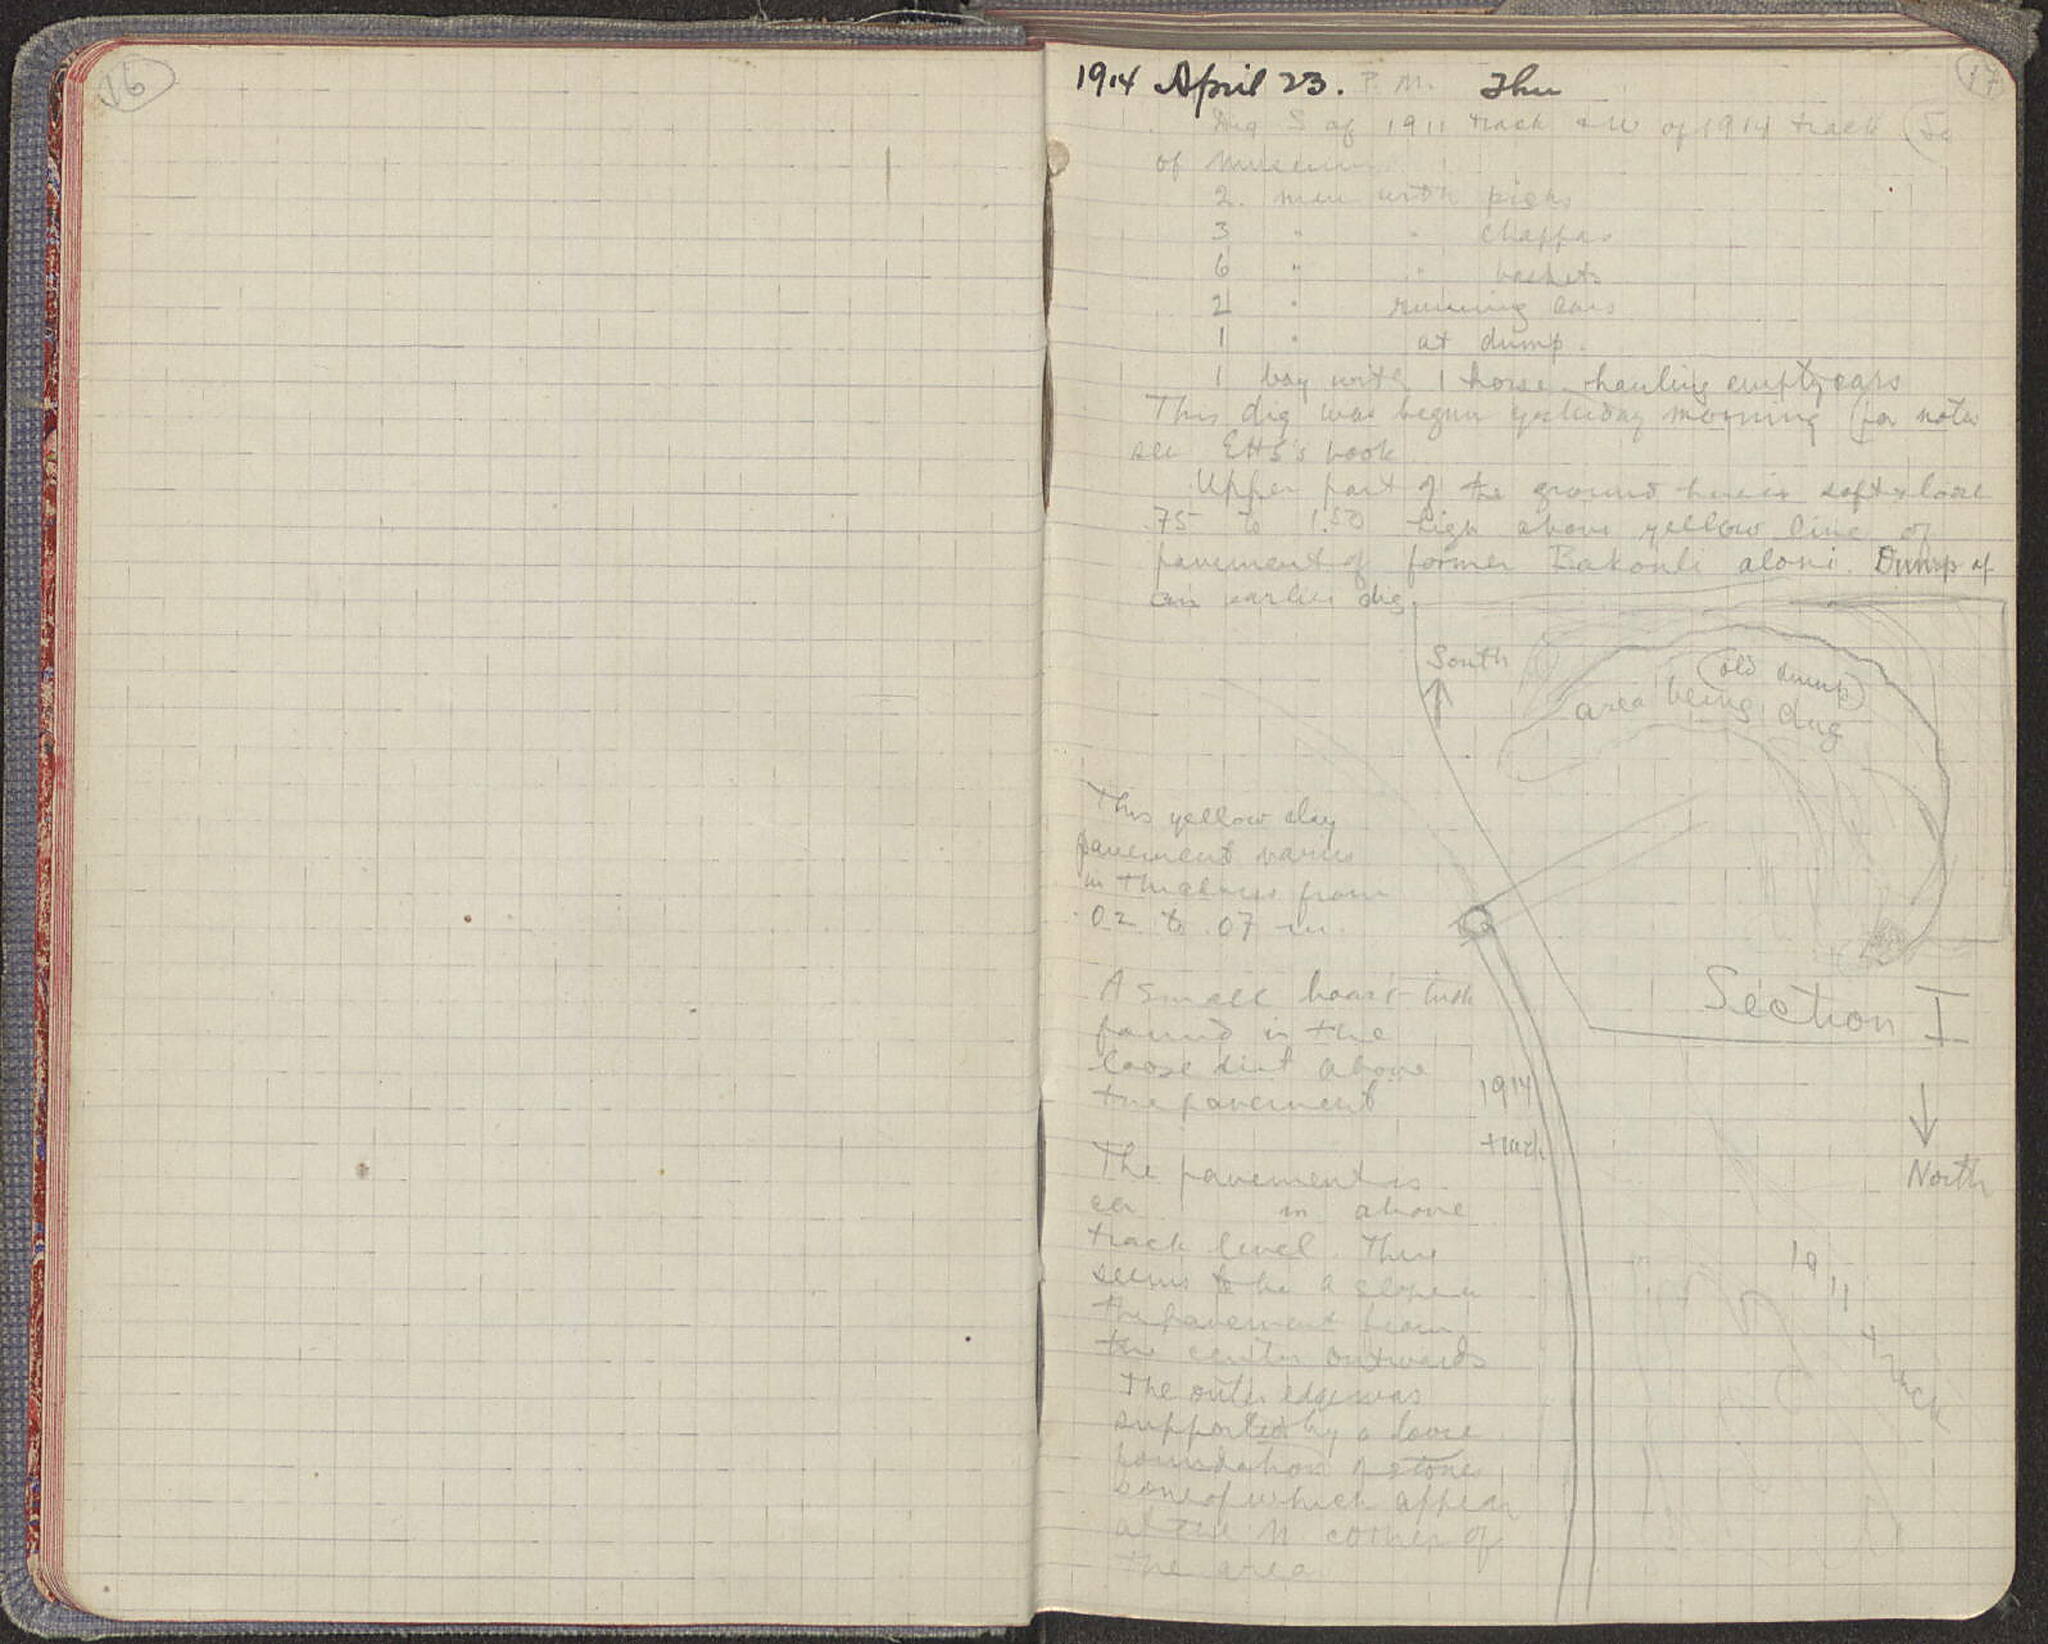 16
17
1914 April 23. P.M. Thu
Dig S of 1911 track + W of 1914 track (So
of Museum
2 men with picks
3 " " chappas
6 " " baskets
2 " running cars
1 " at dump.
1 boy with 1 horse hauling empty cars
This dig was begun yesterday morning (for notes
see EHS's book
Upper part of the ground here is soft + loose
.75 to 1.50 high above yellow line of
pavement of former Bakouli aloni. Dump of
an earlier dig.
South
old dump
area being dug
This yellow clay
pavement varies
in thickness from
.02 to .07 m.
Section I
A small boar's-tusk
found in the
loose dirt above
the pavement
1914
track
North
The pavement is
ca m above
track level. There
seems to be a slope in
the pavement from
the center outwards
The outer edge was
supported by a loose
foundation of stones
some of which appear
at the N. corner of
the area
1911 track